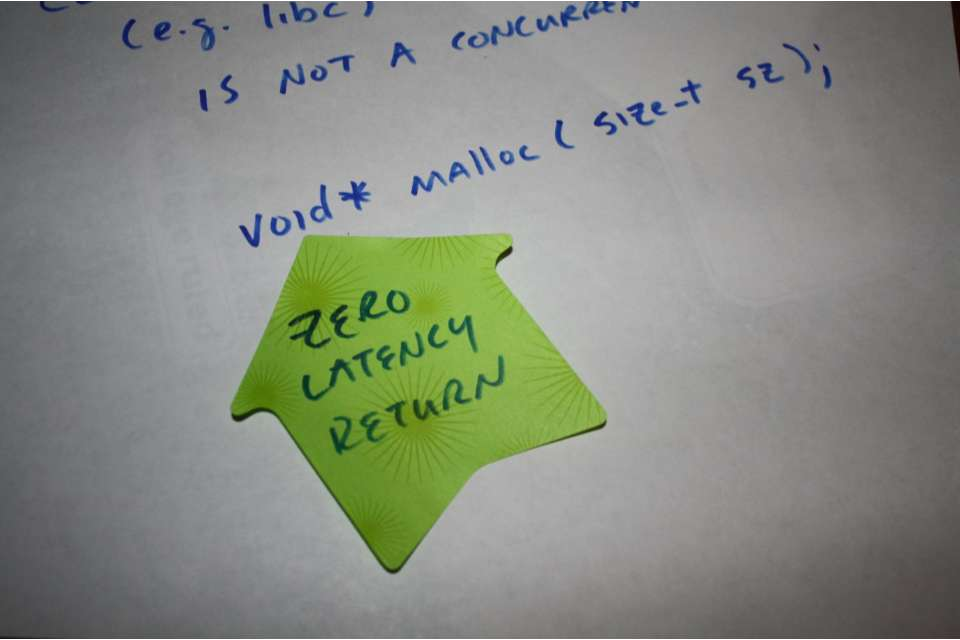 (e.g. libc)
IS NOT A
void* malloc( size_t sz);
ZERO
LATENCY
RETURN